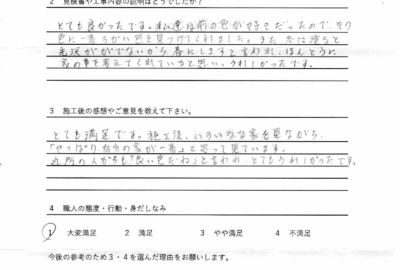 2 見積書や工事内容の説明はどうでしたか？
とても良かったです。私達は前の色が好きだったので、その
色に一番ちかい色を見つけてくれました。また冬に塗ると
光沢がでないから春にしますと言われ、ほんとうに
家の事を考えてくれていると思い、うれしかったです。
3 施工後の感想やご意見を教えて下さい。
とても満足です。施工後、いろいろな家を見ながら、
「やっぱり自分の家が一番」と思って見ています。
近所の人からも「良い色だね」と言われ、とてもうれしかったです。
4 職人の態度・行動・身だしなみ
1 大変満足 2 満足 3 やや満足 4 不満足
今後の参考のため3・4を選んだ理由をお願いします。